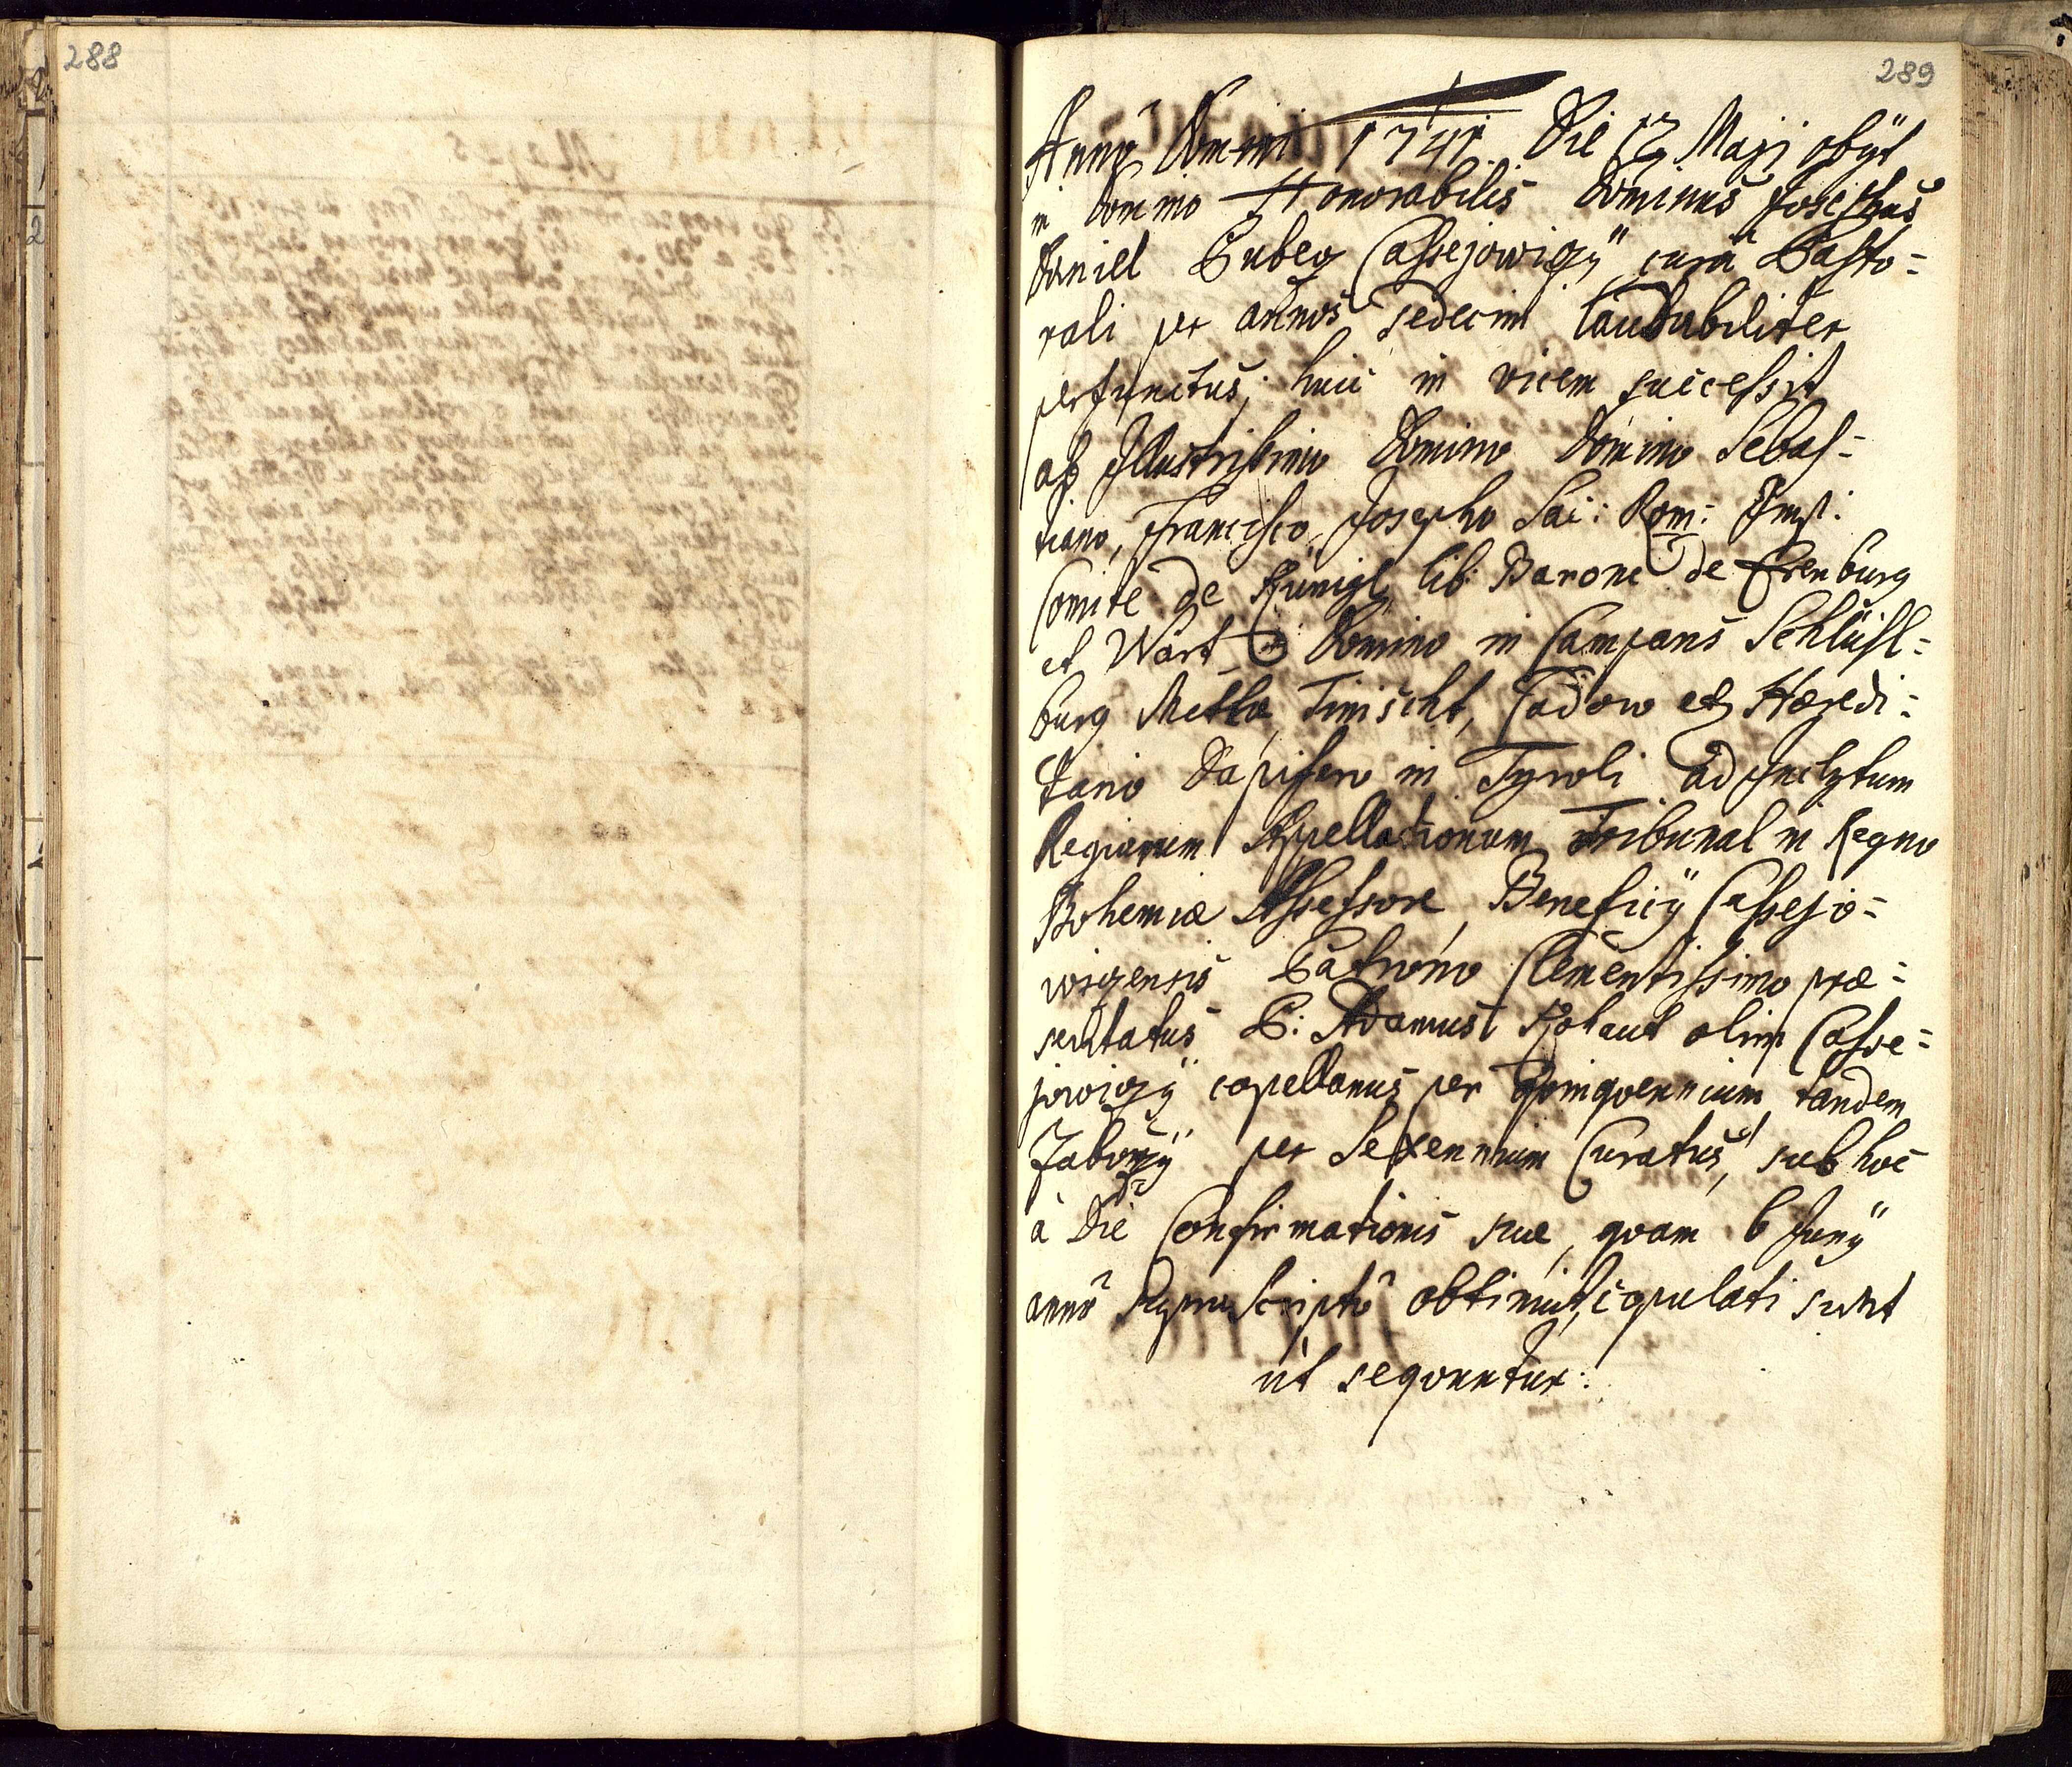 288
289
Anno Domini 1741 Die 17 Maji obijt
in Domino Honorabilis Dominus Josephus
Daniel Cassejowiczÿ curâ Pasto=
rali per annos sedecim laudabiliter
perfunctus; huic in vicem successit
ab Illustrissimo Domino Domino Sebas=
tiano, Francisco, Josepho Sac: Rom: Imp:
Comite de Künigl lib: Barone de Erenburg
et Wart Domino in Campans Schlüsl=
burg Mettla, Tinischt, Cadow et Hæredi=
tario Dapifero in Tyroli ad Inclytum
Regiarum Appellationum Tribunal in Regno
Bohemiæ Assessore, Beneficÿ Cassejo=
wicensis Patrono Clementissimo præ=
sentatus P: Adamus Kohaut olim Casse=
jowiczÿ capellanus per Quinquennium tandem
Zaborzÿ per Sexennium Curatus, sub hoc
à Die Confirmationis suæ, quam 6 Junÿ
annô supra Scriptô obtinuit, copulati sunt
ut sequuntur: